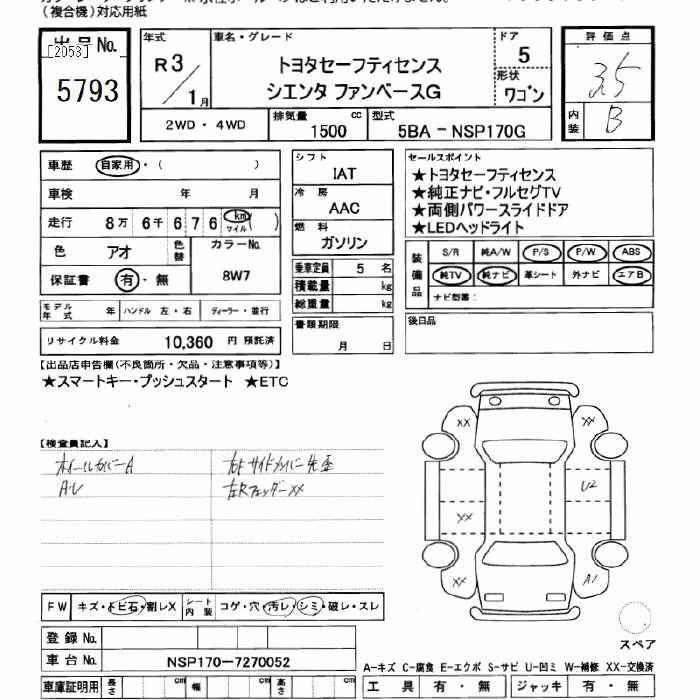 (複合機)対応用紙
出品No.
[2053]
5793
年式
R3/1月
車名・グレード
トヨタセーフティセンス
シエンタ ファンベースG
ドア
5
形状
ワゴン
2WD・4WD
排気量 1500 cc
型式 5BA-NSP170G
評価点
3.5
内装
B
車歴 自家用・( )
車検 年 月
走行 8万 6千 6 7 6 km マイル ( )
色 アオ
色替
カラーNo.
8W7
保証書 有・無
モデル年式 年
ハンドル 左・右
ディーラー・並行
リサイクル料金 10,360 円 預託済
シフト
IAT
冷房
AAC
燃料
ガソリン
乗車定員 5 名
積載量 kg
総重量 kg
書類期限
月 日
セールスポイント
★トヨタセーフティセンス
★純正ナビ・フルセグTV
★両側パワースライドドア
★LEDヘッドライト
装備品
S/R 純A/W P/S P/W ABS
純TV 純ナビ 革シート 外ナビ エアB
ナビ型番:
後日品
【出品店申告欄(不良箇所・欠品・注意事項等)】
★スマートキー・プッシュスタート ★ETC
【検査員記入】
ホイールカバーA
AU
右Fサイドカバー先歪
左Rフェンダーxx
XX
XX
U2
XX
XX
A1
FW キズ・トビ石・割レX
シート内装 コゲ・穴・汚レ・シミ・破レ・スレ
登録No.
車台No. NSP170-7270052
車庫証明用 長さ cm 幅 cm 高さ cm
スペア
A-キズ C-腐食 E-エクボ S-サビ U-凹ミ W-補修 XX-交換済
工具 有・無 ジャッキ 有・無